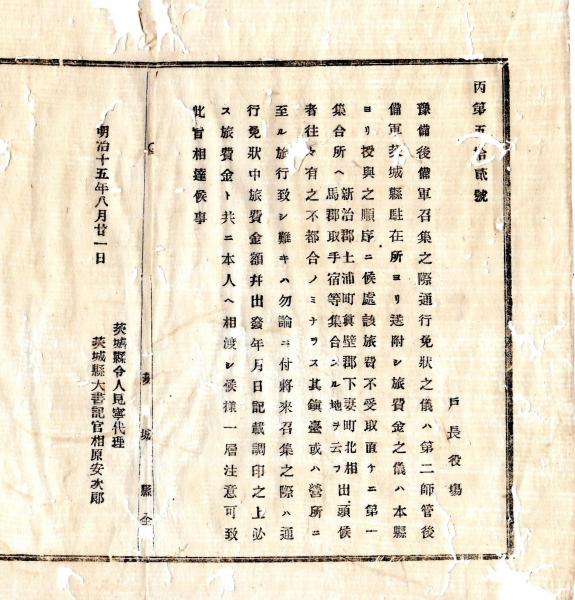 丙第五拾貳號
戸長役場
豫備後備軍召集之際通行免狀之儀ハ第二師管後
備軍茨城縣駐在所ヨリ送附シ旅費金之儀ハ本縣
ヨリ授與之順序ニ候處該旅費不受取直ケニ第一
集合所ヘ新治郡土浦町眞壁郡下妻町北相馬郡取手宿等集合スル地ヲ云フ出頭候
者往々有之不都合ノミナラス其鎭臺或ハ營所ニ
至ル旅行致シ難キハ勿論ニ付將來召集之際ハ通
行免狀中旅費金額幷出發年月日記載調印之上必
ス旅費金ト共ニ本人ヘ相渡シ候樣一層注意可致
此旨相達候事
明治十五年八月廿一日
茨城縣令人見寧代理
茨城縣大書記官相原安次郎
茨城縣